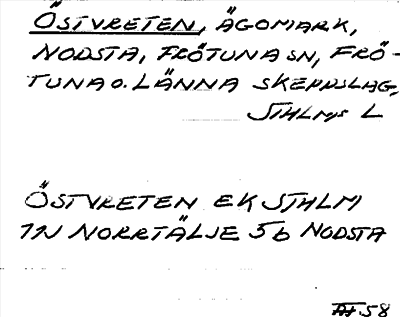 ÖSTVRETEN, ÄGOMARK,
NODSTA, FRÖTUNA SN, FRÖ-
TUNA O. LÄNNA SKEPPSLAG,
STHLMS L
ÖSTVRETEN EK STHLM
1N NORRTÄLJE 5b NODSTA
58